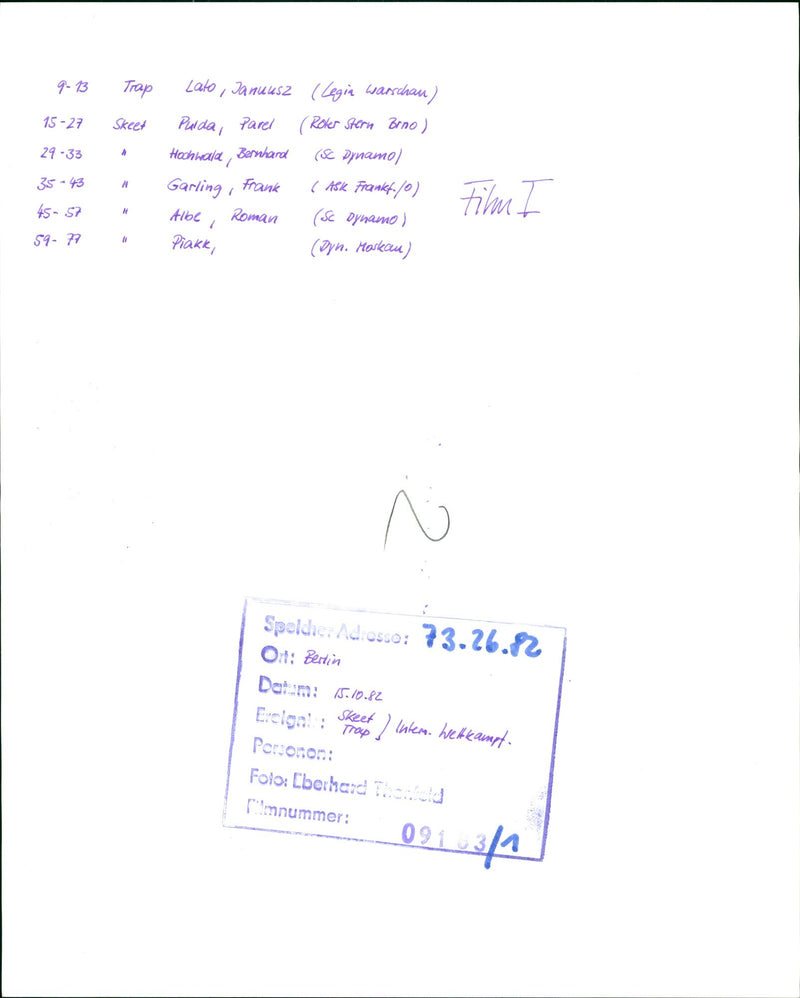 9-13 Trap Lato, Januusz (Legia Warschau)
15-27 Skeet Pulda, Pavel (Roter Stern Brno)
29-33 " Hochwald, Bernhard (SC Dynamo)
35-43 " Garling, Frank (ASK Frankf./O)
45-57 " Albe, Roman (SC Dynamo)
59-77 " Piakk, (Dyn. Moskau)
Film I
2
Speicher Adresse: 73.26.82
Ort: Berlin
Datum: 15.10.82
Ereignis: Skeet Trap } Intern. Wettkampf.
Personen:
Foto: Eberhard Thonfeld
Filmnummer:
091 83/1